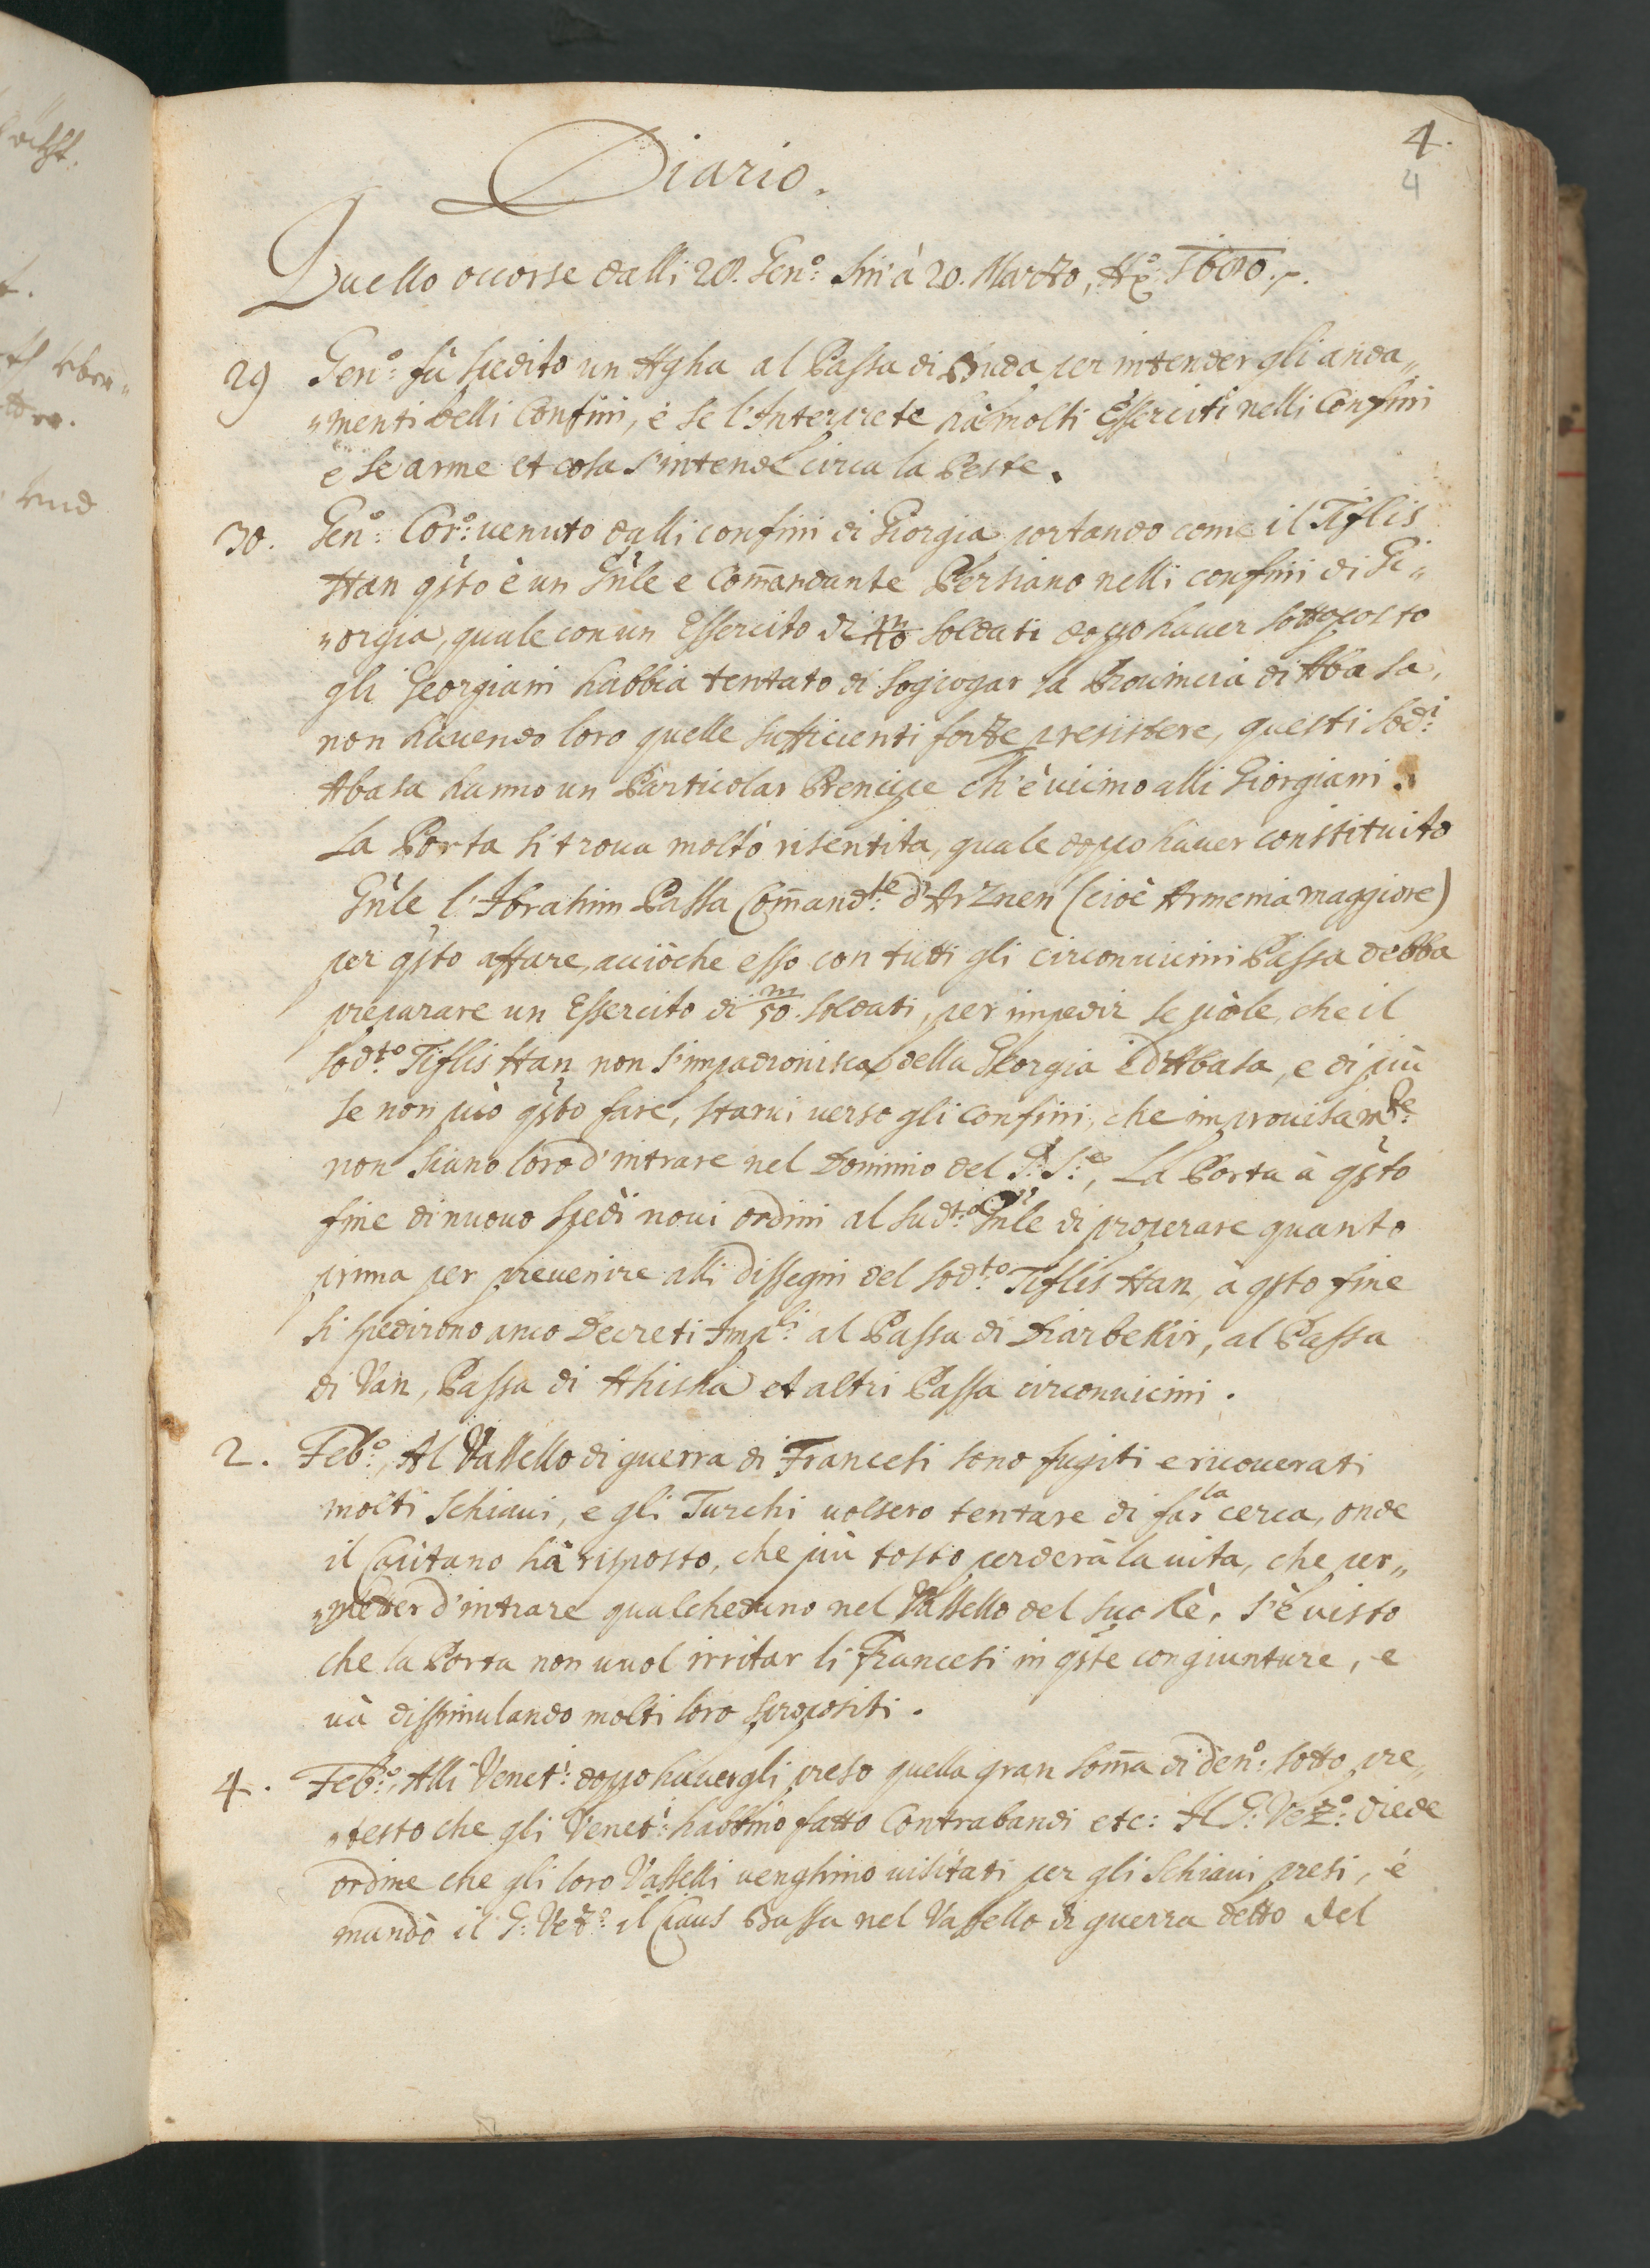 4.
4
Diario.
Quello occorse dalli 28. Genº: sin' à 20. Marzo, Aº: 1680.
29 Genº: fù spedito un Agha al Bassa di Buda per intender gli anda„
„menti delli Confini, è se l'Interprete hà molti Esserciti nelli Confini
e se arme et cosa s'intende circa la Peste.
30. Genº: Corº: venuto dalli confini di Giorgia portando come il Tiflis
Han qsto è un Gnle e Com̄andante Persiano nelli confini di Gi„
„orgia, quale con un Essercito di soldati doppo haver sottoposto
gli Georgiani habbia tentato di sogiogar la Provincia di Abasa,
non havendo loro quelle sufficienti forze p resistere, questi sodi:
Abasa hanno un Particolar Prencipe ch'è vicino alli Giorgiani.
La Porta si trova molto risentita, quale doppo haver constituito
Gnle l'Ibrahim Bassa Com̄andte: d'Arznen (cioè Armenia maggiore)
per qsto affare, acciòche esso con tutti gli circonvicini Bassa debba
preparare un Essercito di 50.m soldati, per impedir se puole, che il
sodto: Tiflis Han non s'impadronisca della Georgia è d'Abasa, e di più
se non può qsto fare, starvi verso gli confini, che improvisamte:
non siano loro d'intrare nel Dominio del G: Sre:, La Porta à qsto
fine di nuovo spedì novi ordini al sudto: Gnle di properare quanto
prima per prevenire alli dissegni del sodto: Tiflis Han, à qsto fine
si spedirono anco Decreti Impli: al Bassa di Diarbekir, al Bassa
di Van, Bassa di Ahiska et altri Bassa circonvicini.
2. Febº:, Al Vassello di guerra di Francesi sono fugiti e ricoverati
molti Schiavi, e gli Turchi volsero tentare di far la cerca, onde
il Capitano hà risposto, che più tosto perderà la vita, che per„
„metter d'intrare qualcheduno nel Vassello del suo Rè, s'è visto
che la Porta non vuol irritar li Francesi in qste congiunture, e
và dissimulando molti loro spropositi.
4. Febº:, Alli Veneti: doppo havergli preso quella gran som̄a di denº: sotto pre„
„testo che gli Veneti: habbino fatto Contrabandi etc: Il G: Vezº: diede
ordine che gli loro Vasselli venghino visitati per gli Schiavi presi, é
mandò il G: Vezº: il Ciaus Bassa nel Vassello di guerra detto del